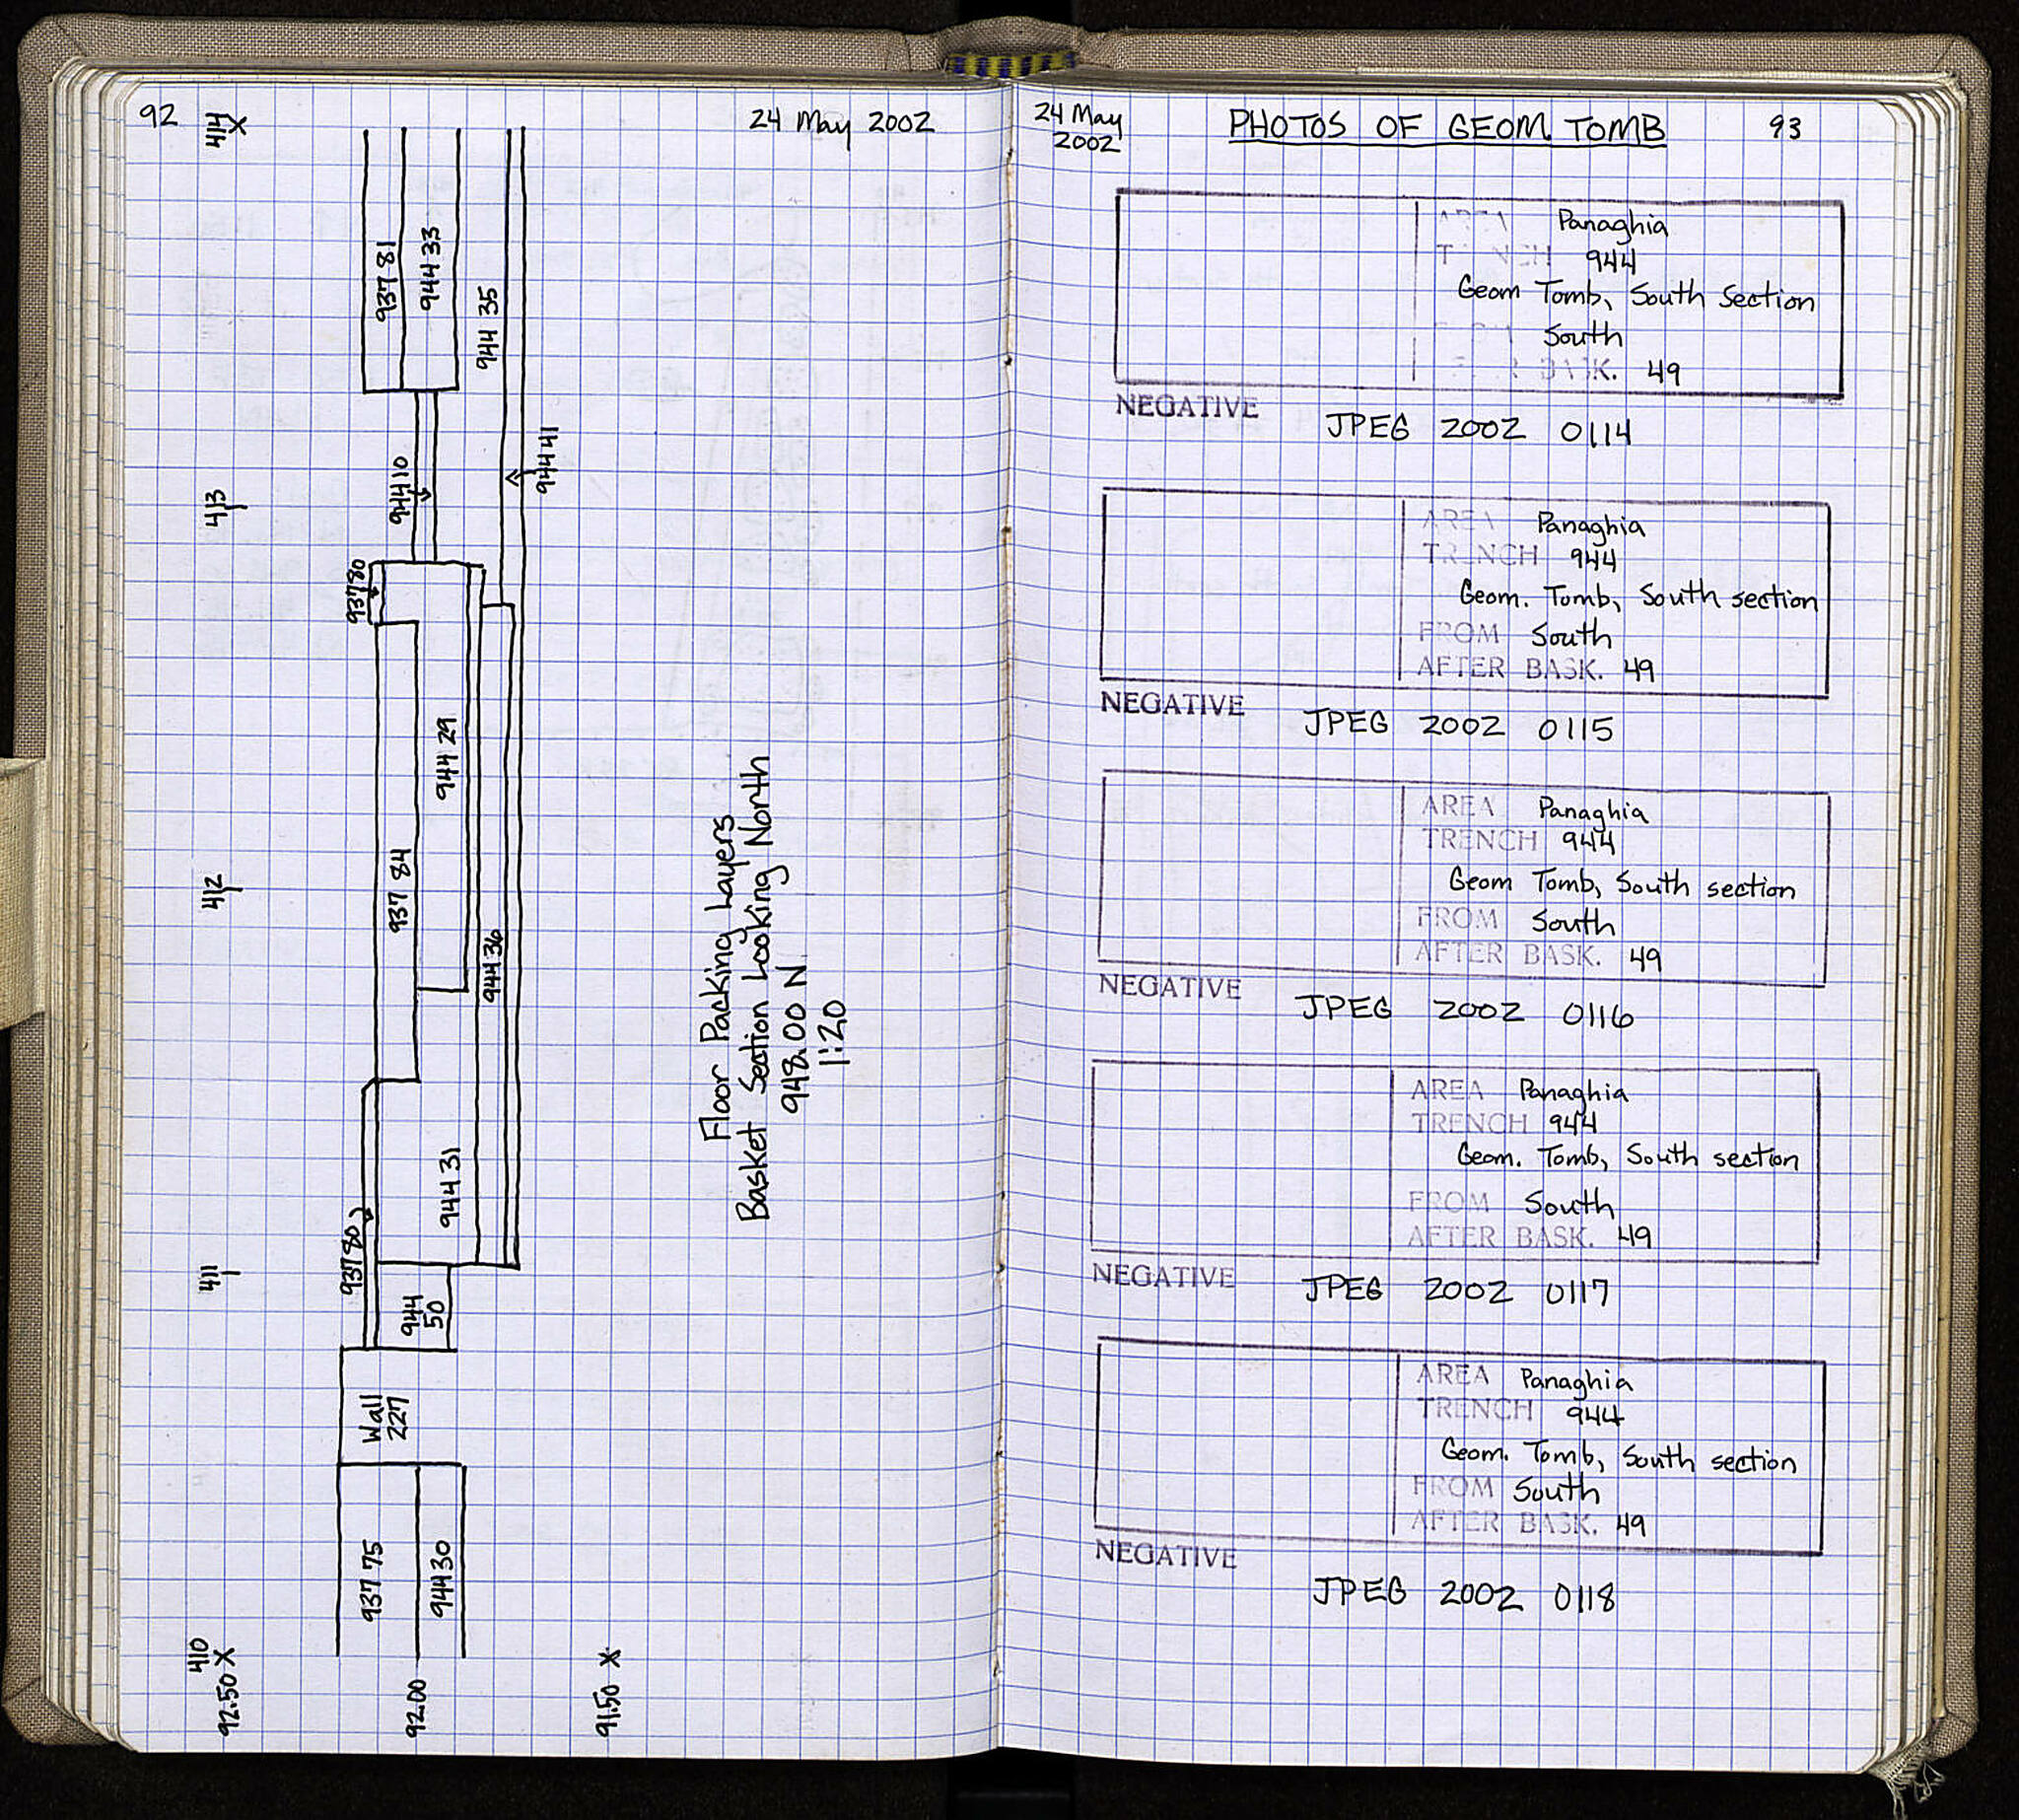 92
24 May 2002
414
413
412
411
410
92.50
92.00
91.50
937 81
944 33
944 35
944 10
944 41
937 80
944 29
937 84
944 36
944 31
937 80
944
50
Wall
227
937 75
944 30
Floor Packing Layers
Basket Section Looking North
948.00 N
1:20
24 May
2002
PHOTOS OF GEOM. TOMB
93
AREA Panaghia
TRENCH 944
Geom Tomb, South section
FROM South
AFTER BASK. 49
NEGATIVE
JPEG 2002 0114
AREA Panaghia
TRENCH 944
Geom. Tomb, South section
FROM South
AFTER BASK. 49
NEGATIVE
JPEG 2002 0115
AREA Panaghia
TRENCH 944
Geom Tomb, South section
FROM South
AFTER BASK. 49
NEGATIVE
JPEG 2002 0116
AREA Panaghia
TRENCH 944
Geom. Tomb, South section
FROM South
AFTER BASK. 49
NEGATIVE
JPEG 2002 0117
AREA Panaghia
TRENCH 944
Geom. Tomb, South section
FROM South
AFTER BASK. 49
NEGATIVE
JPEG 2002 0118